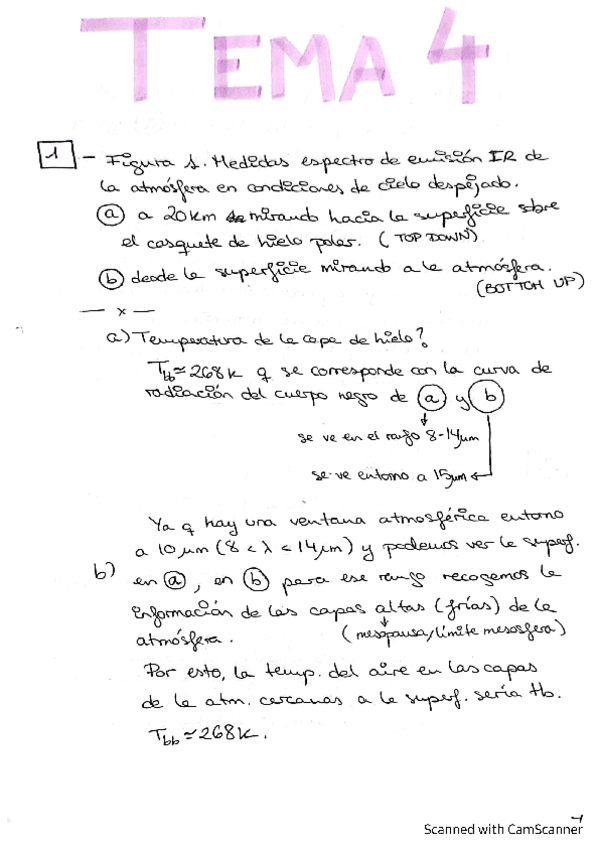 TEMA 4
1 - Figura 1. Medidas espectro de emisión IR de
la atmósfera en condiciones de cielo despejado.
a a 20 km mirando hacia la superficie sobre
el casquete de hielo polar. (TOP DOWN)
b desde la superficie mirando a la atmósfera.
(BOTTOM UP)
— x —
a) Temperatura de la capa de hielo?
Tbb ≃ 268 K q se corresponde con la curva de
radiación del cuerpo negro de a y b
se ve en el rango 8-14 μm
se ve entorno a 15 μm
Ya q hay una ventana atmosférica entorno
a 10 μm (8 < λ < 14 μm) y podemos ver la superf.
b) en a, en b para ese rango recogemos la
información de las capas altas (frías) de la
atmósfera. (mesopausa/límite mesosfera)
Por esto, la temp. del aire en las capas
de la atm. cercanas a la superf. sería tb.
Tbb ≃ 268 K.
1
Scanned with CamScanner